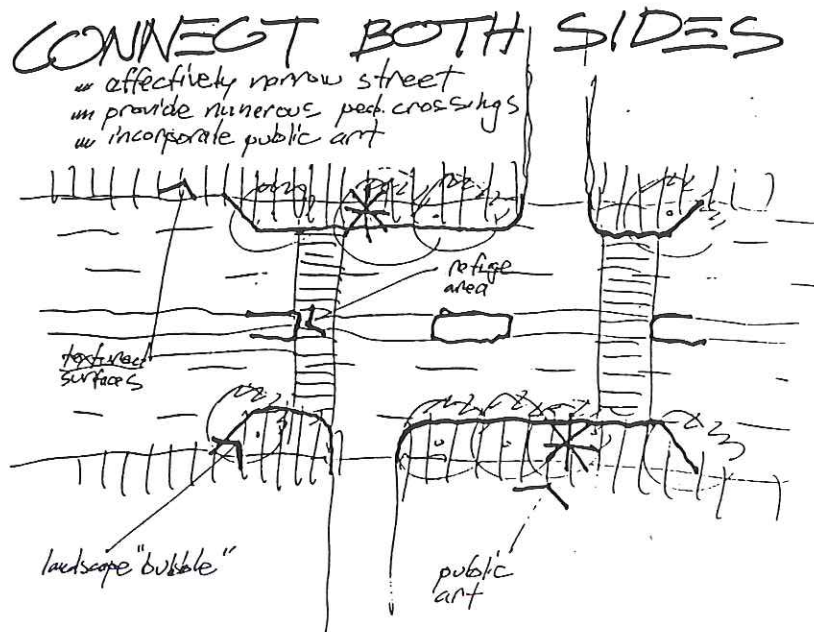 CONNECT BOTH SIDES
affectively narrow street
provide numerous ped. crossings
incorporate public art
refuge
area
textured
surfaces
landscape "bubble"
public
art